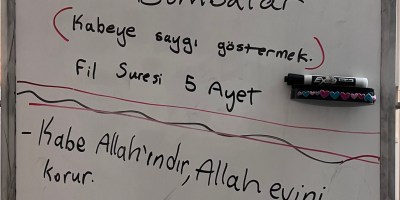 (Kabeye saygı göstermek.)
Fil Suresi 5 Ayet
- Kabe Allah'ındır, Allah evini
korur.